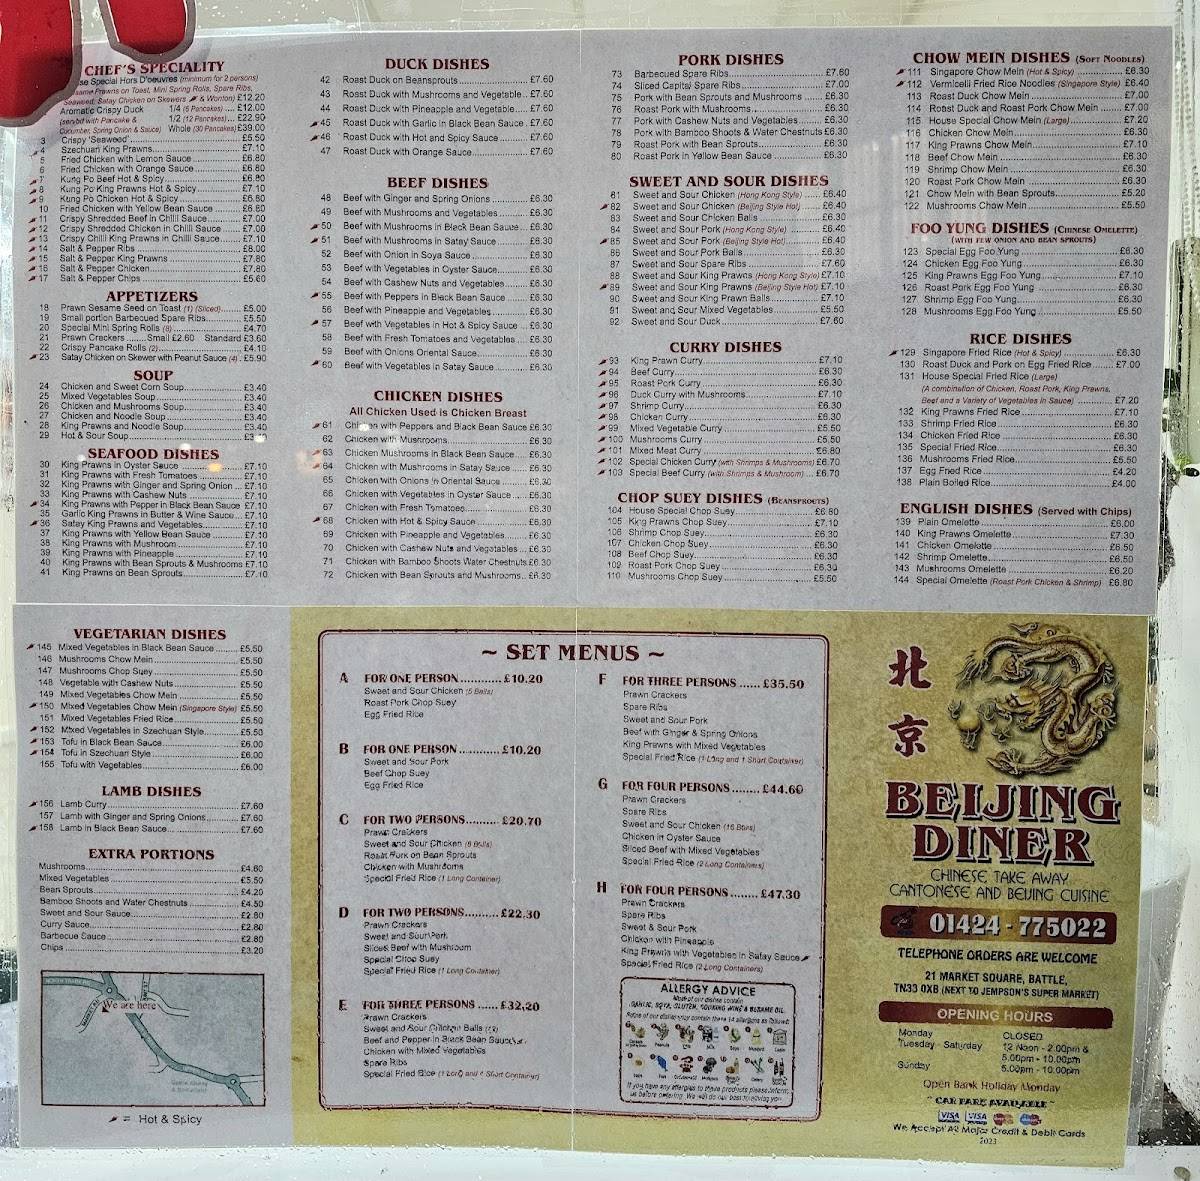 CHEF'S SPECIALITY
Special Hors D'oeuvres (minimum for 2 persons)
Prawns on Toast, Mini Spring Rolls, Spare Ribs,
Seaweed, Satay Chicken on Skewers & Wonton) £12.20
Aromatic Crispy Duck 1/4 (6 Pancakes) ... £12.00
(served with Pancake & 1/2 (12 Pancakes) ... £22.90
Cucumber, Spring Onion & Sauce) Whole (30 Pancakes) £39.00
3 Crispy 'Seaweed' £5.50
4 Szechuan King Prawns £7.10
5 Fried Chicken with Lemon Sauce £6.80
6 Fried Chicken with Orange Sauce £6.80
7 Kung Po Beef Hot & Spicy £6.80
8 Kung Po King Prawns Hot & Spicy £7.10
9 Kung Po Chicken Hot & Spicy £6.80
10 Fried Chicken with Yellow Bean Sauce £6.80
11 Crispy Shredded Beef in Chilli Sauce £7.00
12 Crispy Shredded Chicken in Chilli Sauce £7.00
13 Crispy Chilli King Prawns in Chilli Sauce £7.10
14 Salt & Pepper Ribs £8.00
15 Salt & Pepper King Prawns £7.80
16 Salt & Pepper Chicken £7.80
17 Salt & Pepper Chips £5.60
APPETIZERS
18 Prawn Sesame Seed on Toast (1) (Sliced) £5.00
19 Small portion Barbecued Spare Ribs £5.50
20 Special Mini Spring Rolls (8) £4.70
21 Prawn Crackers Small £2.60 Standard £3.60
22 Crispy Pancake Rolls (2) £4.10
23 Satay Chicken on Skewer with Peanut Sauce (4) £5.90
SOUP
24 Chicken and Sweet Corn Soup £3.40
25 Mixed Vegetables Soup £3.40
26 Chicken and Mushrooms Soup £3.40
27 Chicken and Noodle Soup £3.40
28 King Prawns and Noodle Soup £3.40
29 Hot & Sour Soup
SEAFOOD DISHES
30 King Prawns in Oyster Sauce £7.10
31 King Prawns with Fresh Tomatoes £7.10
32 King Prawns with Ginger and Spring Onion £7.10
33 King Prawns with Cashew Nuts £7.10
34 King Prawns with Pepper in Black Bean Sauce £7.10
35 Garlic King Prawns in Butter & Wine Sauce £7.10
36 Satay King Prawns and Vegetables £7.10
37 King Prawns with Yellow Bean Sauce £7.10
38 King Prawns with Mushroom £7.10
39 King Prawns with Pineapple £7.10
40 King Prawns with Bean Sprouts & Mushrooms £7.10
41 King Prawns on Bean Sprouts £7.10
DUCK DISHES
42 Roast Duck on Beansprouts £7.60
43 Roast Duck with Mushrooms and Vegetable £7.60
44 Roast Duck with Pineapple and Vegetable £7.60
45 Roast Duck with Garlic in Black Bean Sauce £7.60
46 Roast Duck with Hot and Spicy Sauce £7.60
47 Roast Duck with Orange Sauce £7.60
BEEF DISHES
48 Beef with Ginger and Spring Onions £6.30
49 Beef with Mushrooms and Vegetables £6.30
50 Beef with Mushrooms in Black Bean Sauce £6.30
51 Beef with Mushrooms in Satay Sauce £6.30
52 Beef with Onion in Soya Sauce £6.30
53 Beef with Vegetables in Oyster Sauce £6.30
54 Beef with Cashew Nuts and Vegetables £6.30
55 Beef with Peppers in Black Bean Sauce £6.30
56 Beef with Pineapple and Vegetables £6.30
57 Beef with Vegetables in Hot & Spicy Sauce £6.30
58 Beef with Fresh Tomatoes and Vegetables £6.30
59 Beef with Onions Oriental Sauce £6.30
60 Beef with Vegetables in Satay Sauce £6.30
CHICKEN DISHES
All Chicken Used is Chicken Breast
61 Chicken with Peppers and Black Bean Sauce £6.30
62 Chicken with Mushrooms £6.30
63 Chicken Mushrooms in Black Bean Sauce £6.30
64 Chicken with Mushrooms in Satay Sauce £6.30
65 Chicken with Onions in Oriental Sauce £6.30
66 Chicken with Vegetables in Oyster Sauce £6.30
67 Chicken with Fresh Tomatoes £6.30
68 Chicken with Hot & Spicy Sauce £6.30
69 Chicken with Pineapple and Vegetables £6.30
70 Chicken with Cashew Nuts and Vegetables £6.30
71 Chicken with Bamboo Shoots Water Chestnuts £6.30
72 Chicken with Bean Sprouts and Mushrooms £6.30
PORK DISHES
73 Barbecued Spare Ribs £7.60
74 Sliced Capital Spare Ribs £7.00
75 Pork with Bean Sprouts and Mushrooms £6.30
76 Roast Pork with Mushrooms £6.30
77 Pork with Cashew Nuts and Vegetables £6.30
78 Pork with Bamboo Shoots & Water Chestnuts £6.30
79 Roast Pork with Bean Sprouts £6.30
80 Roast Pork in Yellow Bean Sauce £6.30
SWEET AND SOUR DISHES
81 Sweet and Sour Chicken (Hong Kong Style) £6.40
82 Sweet and Sour Chicken (Beijing Style Hot) £6.40
83 Sweet and Sour Chicken Balls £6.30
84 Sweet and Sour Pork (Hong Kong Style) £6.40
85 Sweet and Sour Pork (Beijing Style Hot) £6.40
86 Sweet and Sour Pork Balls £6.30
87 Sweet and Sour Spare Ribs £7.60
88 Sweet and Sour King Prawns (Hong Kong Style) £7.10
89 Sweet and Sour King Prawns (Beijing Style Hot) £7.10
90 Sweet and Sour King Prawn Balls £7.10
91 Sweet and Sour Mixed Vegetables £5.50
92 Sweet and Sour Duck £7.60
CURRY DISHES
93 King Prawn Curry £7.10
94 Beef Curry £6.30
95 Roast Pork Curry £6.30
96 Duck Curry with Mushrooms £7.10
97 Shrimp Curry £6.30
98 Chicken Curry £6.30
99 Mixed Vegetable Curry £5.50
100 Mushrooms Curry £5.50
101 Mixed Meat Curry £6.80
102 Special Chicken Curry (with Shrimps & Mushrooms) £6.70
103 Special Beef Curry (with Shrimps & Mushroom) £6.70
CHOP SUEY DISHES (BEANSPROUTS)
104 House Special Chop Suey £6.80
105 King Prawns Chop Suey £7.10
106 Shrimp Chop Suey £6.30
107 Chicken Chop Suey £6.30
108 Beef Chop Suey £6.30
109 Roast Pork Chop Suey £6.30
110 Mushrooms Chop Suey £5.50
CHOW MEIN DISHES (SOFT NOODLES)
111 Singapore Chow Mein (Hot & Spicy) £6.30
112 Vermicelli Fried Rice Noodles (Singapore Style) £6.40
113 Roast Duck Chow Mein £7.00
114 Roast Duck and Roast Pork Chow Mein £7.00
115 House Special Chow Mein (Large) £7.20
116 Chicken Chow Mein £6.30
117 King Prawns Chow Mein £7.10
118 Beef Chow Mein £6.30
119 Shrimp Chow Mein £6.30
120 Roast Pork Chow Mein £6.30
121 Chow Mein with Bean Sprouts £5.20
122 Mushrooms Chow Mein £5.50
FOO YUNG DISHES (CHINESE OMELETTE)
(WITH FEW ONION AND BEAN SPROUTS)
123 Special Egg Foo Yung £6.30
124 Chicken Egg Foo Yung £6.30
125 King Prawns Egg Foo Yung £7.10
126 Roast Pork Egg Foo Yung £6.30
127 Shrimp Egg Foo Yung £6.30
128 Mushrooms Egg Foo Yung £5.50
RICE DISHES
129 Singapore Fried Rice (Hot & Spicy) £6.30
130 Roast Duck and Pork on Egg Fried Rice £7.00
131 House Special Fried Rice (Large)
(A combination of Chicken, Roast Pork, King Prawns,
Beef and a Variety of Vegetables in Sauce) £7.20
132 King Prawns Fried Rice £7.10
133 Shrimp Fried Rice £6.30
134 Chicken Fried Rice £6.30
135 Special Fried Rice £6.30
136 Mushrooms Fried Rice £5.50
137 Egg Fried Rice £4.20
138 Plain Boiled Rice £4.00
ENGLISH DISHES (Served with Chips)
139 Plain Omelette £6.00
140 King Prawns Omelette £7.30
141 Chicken Omelette £6.50
142 Shrimp Omelette £6.50
143 Mushrooms Omelette £6.20
144 Special Omelette (Roast Pork Chicken & Shrimp) £6.80
VEGETARIAN DISHES
145 Mixed Vegetables in Black Bean Sauce £5.50
146 Mushrooms Chow Mein £5.50
147 Mushrooms Chop Suey £5.50
148 Vegetable with Cashew Nuts £5.50
149 Mixed Vegetables Chow Mein £5.50
150 Mixed Vegetables Chow Mein (Singapore Style) £5.50
151 Mixed Vegetables Fried Rice £5.50
152 Mixed Vegetables in Szechuan Style £5.50
153 Tofu in Black Bean Sauce £6.00
154 Tofu in Szechuan Style £6.00
155 Tofu with Vegetables £6.00
LAMB DISHES
156 Lamb Curry £7.60
157 Lamb with Ginger and Spring Onions £7.60
158 Lamb in Black Bean Sauce £7.60
EXTRA PORTIONS
Mushrooms £4.60
Mixed Vegetables £5.50
Bean Sprouts £4.20
Bamboo Shoots and Water Chestnuts £4.50
Sweet and Sour Sauce £2.80
Curry Sauce £2.80
Barbecue Sauce £2.80
Chips £3.20
We are here
= Hot & Spicy
~ SET MENUS ~
A FOR ONE PERSON £10.20
Sweet and Sour Chicken (5 Balls)
Roast Pork Chop Suey
Egg Fried Rice
B FOR ONE PERSON £10.20
Sweet and Sour Pork
Beef Chop Suey
Egg Fried Rice
C FOR TWO PERSONS £20.70
Prawn Crackers
Sweet and Sour Chicken (8 Balls)
Roast Pork on Bean Sprouts
Chicken with Mushrooms
Special Fried Rice (1 Long Container)
D FOR TWO PERSONS £22.30
Prawn Crackers
Sweet and Sour Pork
Sliced Beef with Mushroom
Special Chop Suey
Special Fried Rice (1 Long Container)
E FOR THREE PERSONS £32.20
Prawn Crackers
Sweet and Sour Chicken Balls
Beef and Pepper in Black Bean Sauce
Chicken with Mixed Vegetables
Spare Ribs
Special Fried Rice (1 Long and 1 Short Container)
F FOR THREE PERSONS £35.50
Prawn Crackers
Spare Ribs
Sweet and Sour Pork
Beef with Ginger & Spring Onions
King Prawns with Mixed Vegetables
Special Fried Rice (1 Long and 1 Short Container)
G FOR FOUR PERSONS £44.60
Prawn Crackers
Spare Ribs
Sweet and Sour Chicken (16 Balls)
Chicken in Oyster Sauce
Sliced Beef with Mixed Vegetables
Special Fried Rice (2 Long Containers)
H FOR FOUR PERSONS £47.30
Prawn Crackers
Spare Ribs
Sweet & Sour Pork
Chicken with Pineapple
King Prawns with Vegetables in Satay Sauce
Special Fried Rice (2 Long Containers)
ALLERGY ADVICE
Most of our dishes contain
GARLIC, SOYA, GLUTEN, COOKING WINE & SESAME OIL.
Some of our dishes may contain these 14 allergens as follows:
If you have any allergies to these products please inform
us before ordering. We will do our best to advise you.
北
京
BEIJING
DINER
CHINESE TAKE AWAY
CANTONESE AND BEIJING CUISINE
01424 - 775022
TELEPHONE ORDERS ARE WELCOME
21 MARKET SQUARE, BATTLE,
TN33 0XB (NEXT TO JEMPSON'S SUPER MARKET)
OPENING HOURS
Monday CLOSED
Tuesday - Saturday 12 Noon - 2.00pm &
5.00pm - 10.00pm
Sunday 5.00pm - 10.00pm
Open Bank Holiday Monday
~ CAR PARK AVAILABLE ~
VISA VISA
We Accept All Major Credit & Debit Cards
2023